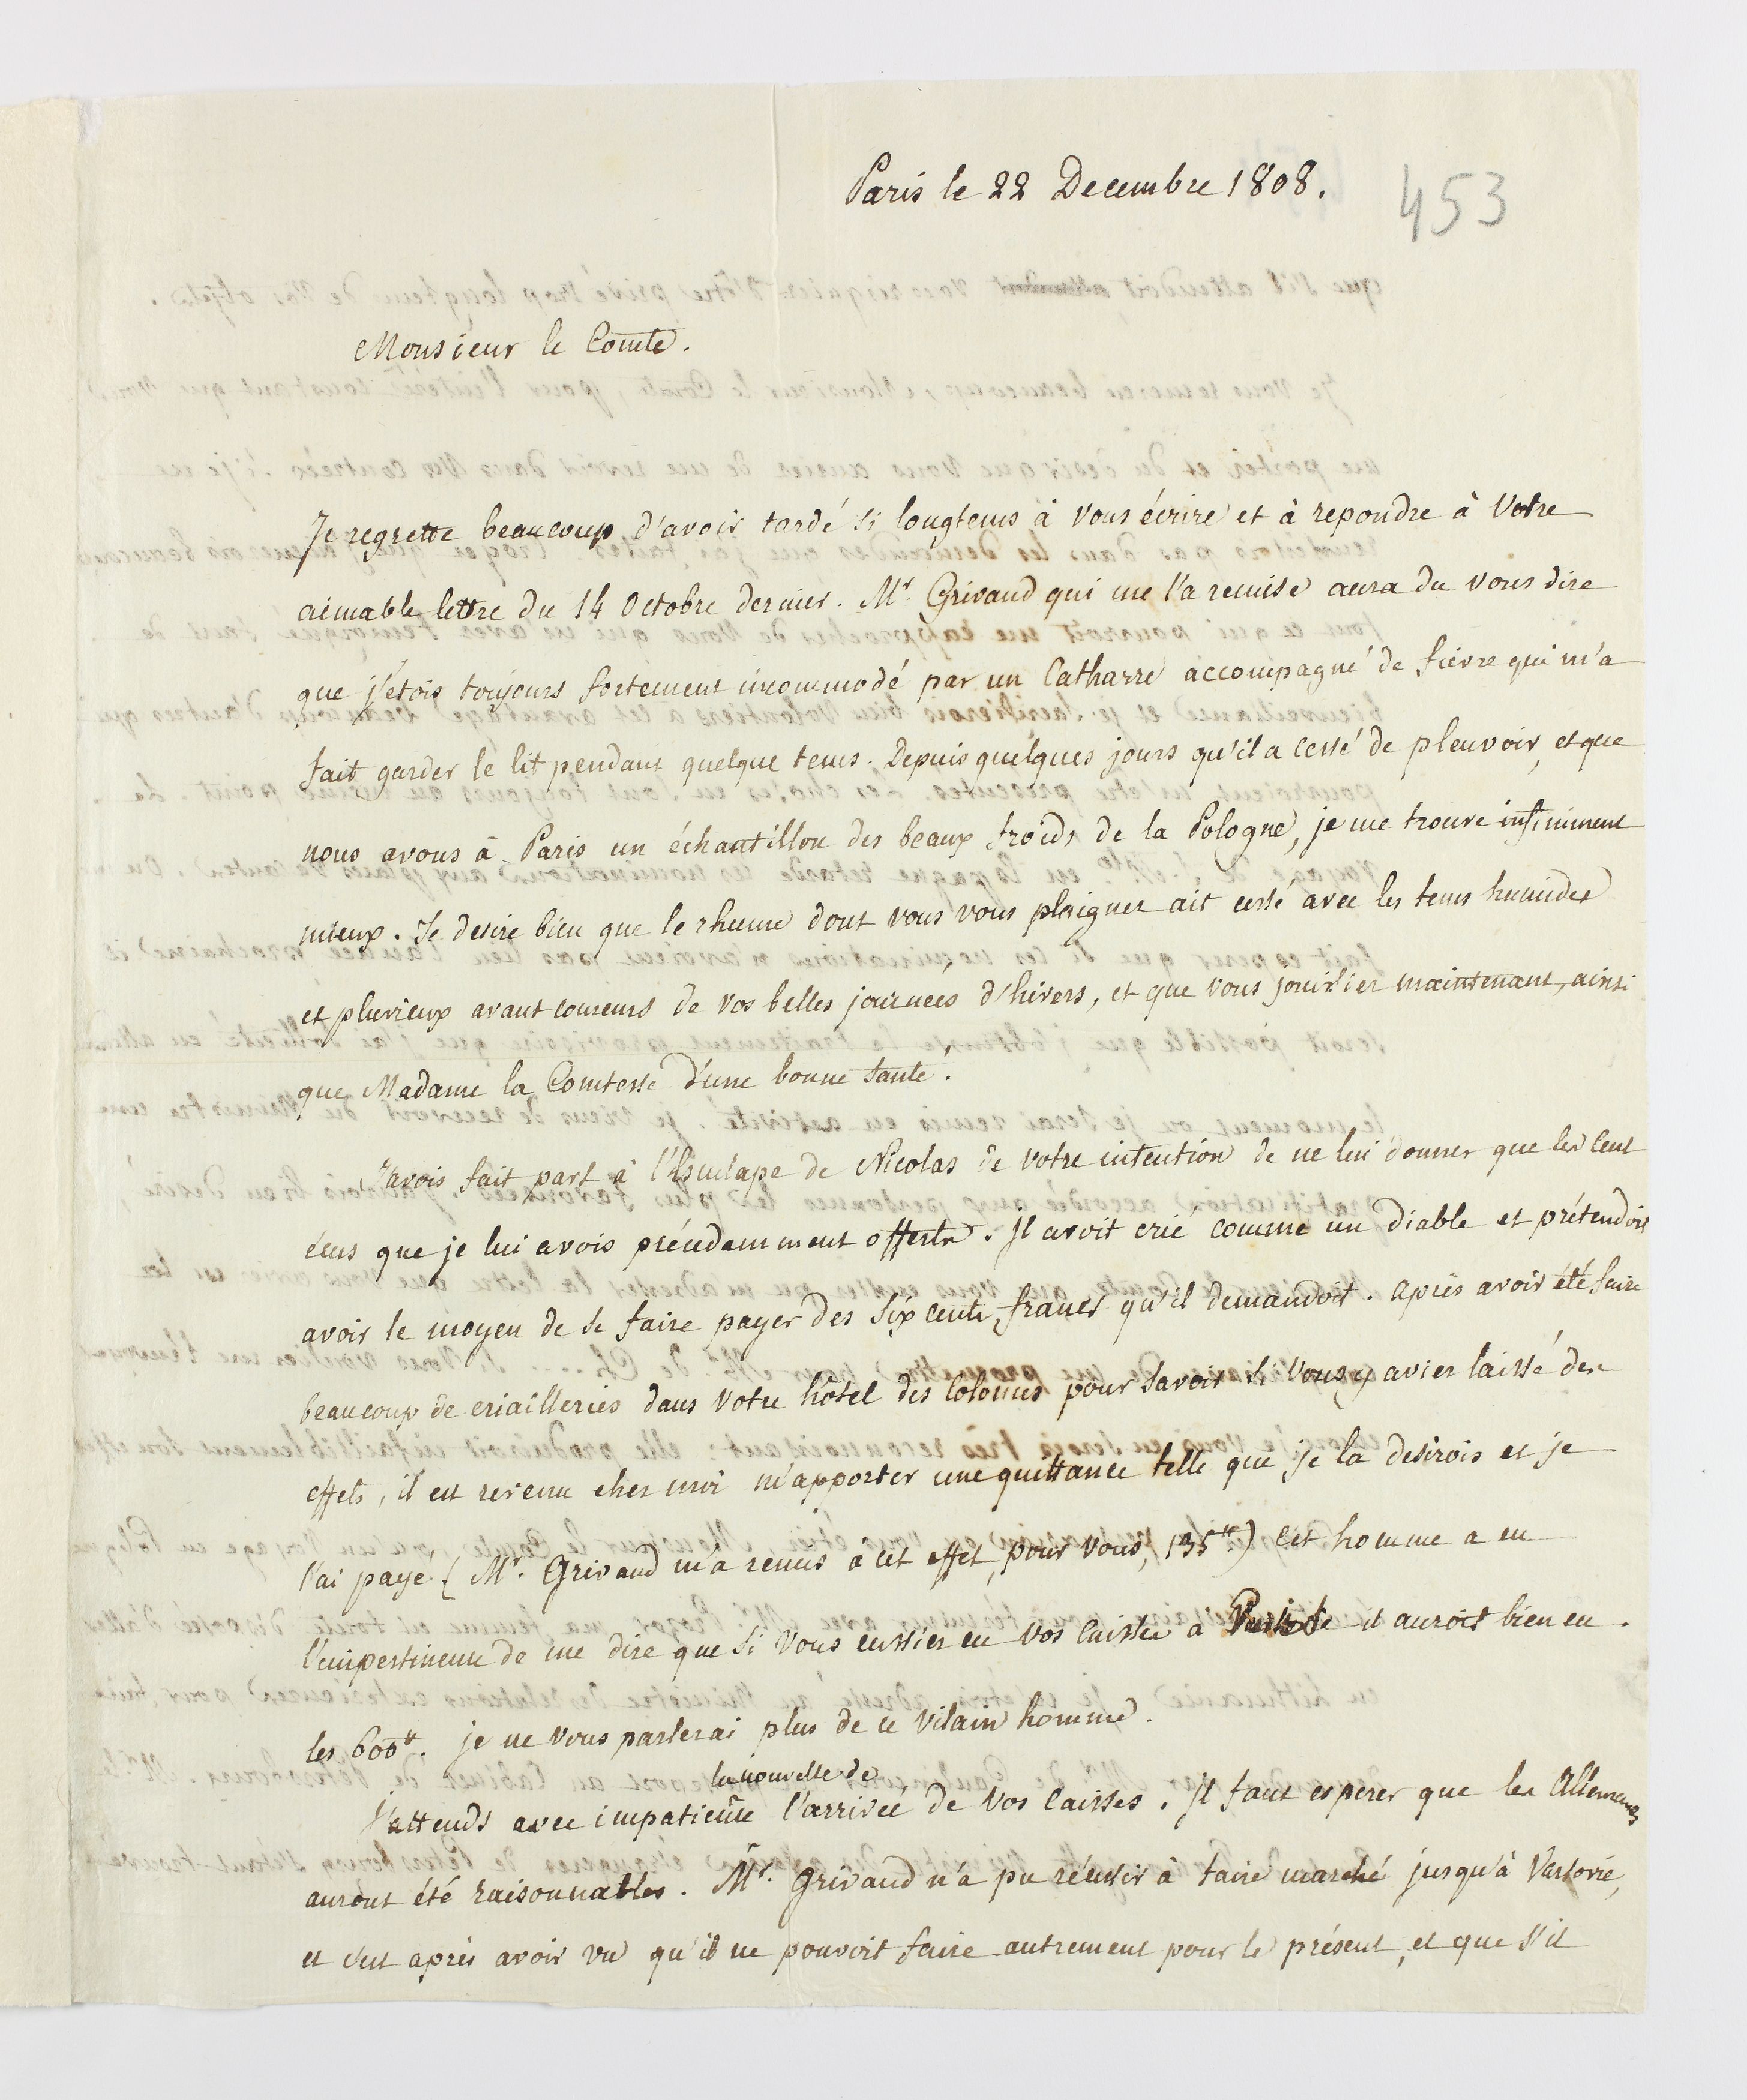 Paris le 22 Decembre 1808.
453
Monsieur le Comte.
Je regrette beaucoup d'avoir tardé si longtems à vous écrire et à repondre à Votre
aimable lettre du 14 Octobre dernier. Mr. Grivaud qui me l'a remise aura du vous dire
que j'étois toujours fortement incommodé par un Catharre accompagné de fièvre qui m'a
fait garder le lit pendant quelque tems. Depuis quelques jours qu'il a cessé de pleuvoir, et que
nous avons à Paris un échantillon des beaux froids de la Pologne, je me trouve infiniment
mieux. Je desire bien que le rhume dont vous vous plaignez ait cessé avec les tems humides
et pluvieux avant coureurs de vos belles journées d'hivers, et que vous jouissiez maintenant, ainsi
que Madame la Comtesse d'une bonne santé.
J'avois fait part à l'Esculape de Nicolas de votre intention de ne lui donner que les Cent
écus que je lui avois précédamment offerts. Il avoit crié comme un Diable et prétendoit
avoir le moyen de se faire payer des Six cents francs qu'il demandoit. Après avoir été faire
beaucoup de criailleries dans Votre hôtel des Colonies pour savoir si Vous y aviez laissé des
effets, il est revenu chez moi m'apporter une quittance telle que je la desirois et je
l'ai payé (Mr. Grivaud m'a remis à cet effet, pour vous, 135tt) Cet homme a eu
l'impertinence de me dire que si Vous eussiez eu vos caisses a il auroit bien eu
les 600tt. je ne vous parlerai plus de ce vilain homme.
J'attends avec impatience la nouvelle de l'arrivée de vos caisses. Il faut esperer que les Allemands
auront été raisonnables. Mr. Grivaud n'a pu réussir à faire marché jusqu'à Varsovie,
et c'est après avoir vu qu'il ne pouvoit faire autrement pour le présent, et que s'il